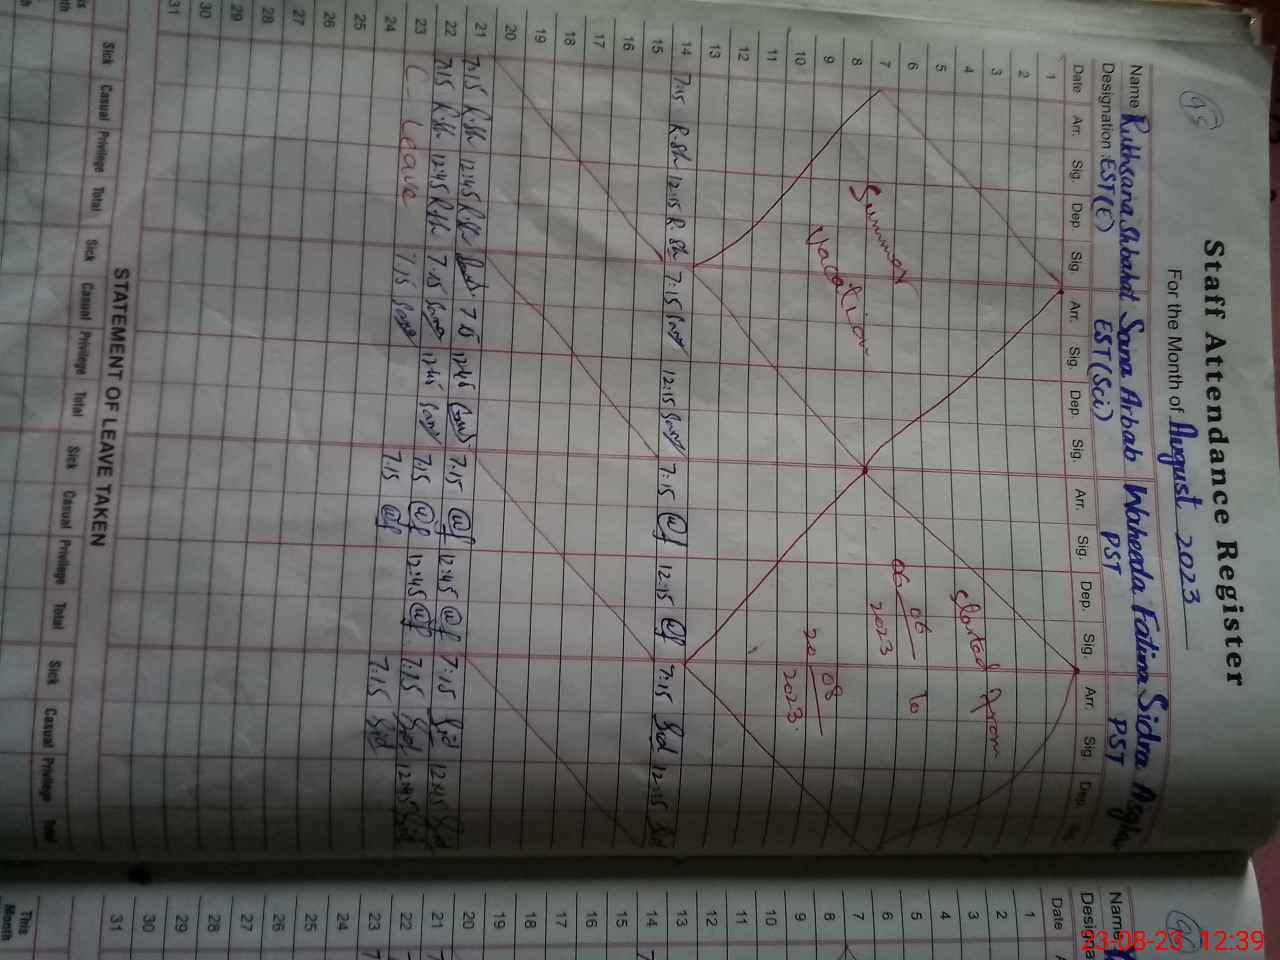 98
Staff Attendance Register
For the Month of August 2023
Name Rukhsana Shbahat Sana Arbab Waheeda Fatima Sidra Asghar
Designation: EST(E) EST(Sci) PST PST
Date Arr. Sig. Dep. Sig. Arr. Sig. Dep. Sig. Arr. Sig. Dep. Sig. Arr. Sig Dep.
1
2
3
4
5
6
7
8
9
10
11
12
13
Summer
Vacation
Started From
06 06 2023 to
20 08 2023.
14 7:15 R.Sh 12:15 R.Sh 7:15 Sana 12:15 Sana 7:15 @f 12:15 @f 7:15 Sid 12:15 Sid
15
16
17
18
19
20
21 7:15 R.Sh 12:45 R.Sh 7:15 12:45 Sana 7:15 @f 12:45 @f 7:15 Sid 12:45 Sid
22 7:15 R.Sh 12:45 R.Sh 7:15 Sana 12:45 Sana 7:15 @f 12:45 @f 7:15 Sid 12:45 Sid
23 ( Leave 7:15 Sana 7:15 @f 7:15 Sid
24
25
26
27
28
29
30
31
STATEMENT OF LEAVE TAKEN
Sick Casual Privilege Total Sick Casual Privilege Total Sick Casual Privilege Total Sick Casual Privilege Total
Name
Date
1
2
3
4
5
6
7
8
9
10
11
12
13
14
15
16
17
18
19
20
21
22
23
24
25
26
27
28
29
30
31
This
Month
23-08-23 12:39